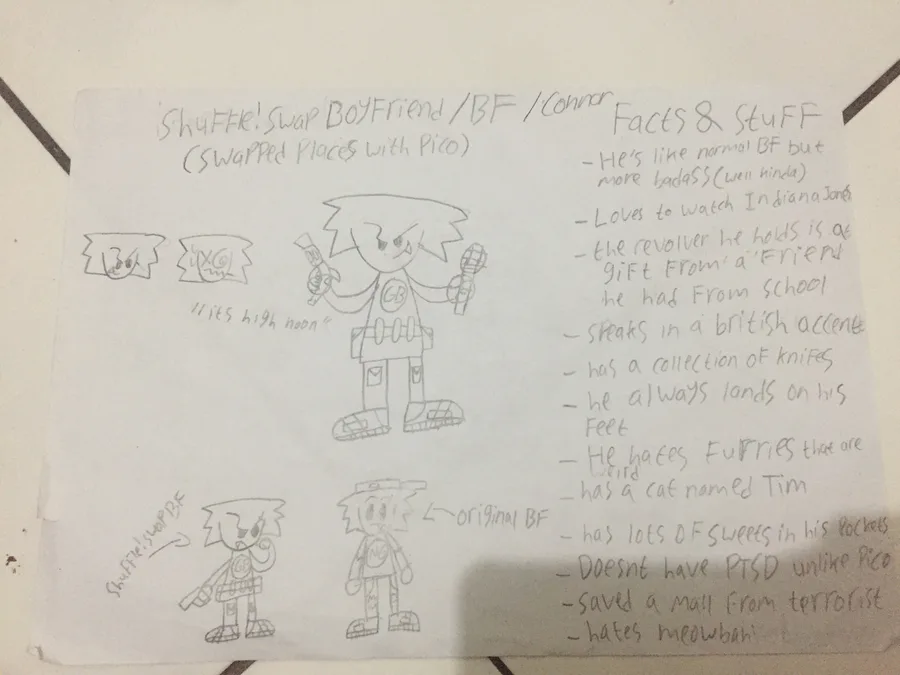 Shuffle! Swap Boyfriend / BF / Connor
(Swapped Places with Pico)
"its high noon"
GB
Shuffle! Swap BF
GB
NG
original BF
Facts & Stuff
- He's like normal BF but
more badass (well kinda)
- Loves to watch Indiana Jones
- the revolver he holds is a
gift From a "Friend
he had From school
- speaks in a british accent
- has a collection of knifes
- he always lands on his
Feet
- He hates Furries that are
weird
- has a cat named Tim
- has lots of sweets in his Pockets
- Doesnt have PTSD unlike Pico
- saved a mall From terrorist
- hates meowbah